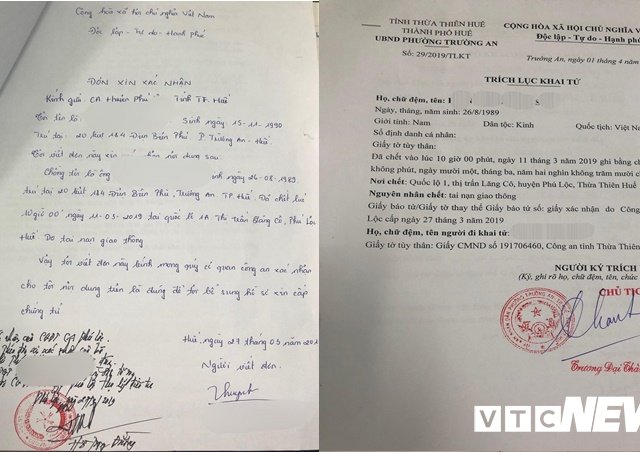 Cộng hòa xã hội chủ nghĩa Việt Nam
Độc lập - Tự do - Hạnh phúc
ĐƠN XIN XÁC NHẬN
Kính gửi: CA Huyện Phú Tỉnh TT. Huế
Tôi tên là: Sinh ngày 15-11-1990
Trú tại: 20 kiệt 184 Điện Biên Phủ P. Trường An - Huế
Tôi viết đơn này xin nội dung sau
Chồng tôi là ông inh ngày 26-08-1989
trú tại 20 kiệt 184 Điện Biên Phủ, Trường An TP Huế. Đã chết lúc
10giờ 00 ngày 11-03-2019 tại quốc lộ 1A Thị Trấn Lăng Cô, Phú Lộc
Huế Do tai nạn giao thông
Vậy tôi viết đơn này kính mong quý cơ quan công an xác nhận
cho tôi nội dung trên là đúng để tôi bổ sung hồ sơ xin cấp
chứng tử
Huế ngày 27 tháng 03 năm 201
Người viết đơn
TỈNH THỪA THIÊN HUẾ
THÀNH PHỐ HUẾ
UBND PHƯỜNG TRƯỜNG AN
Số: 29/2019/TLKT
CỘNG HÒA XÃ HỘI CHỦ NGHĨA V
Độc lập - Tự do - Hạnh ph
Trường An, ngày 01 tháng 4 năm
TRÍCH LỤC KHAI TỬ
Họ, chữ đệm, tên:
Ngày, tháng, năm sinh: 26/8/1989
Giới tính: Nam Dân tộc: Kinh Quốc tịch: Việt N
Số định danh cá nhân:
Giấy tờ tùy thân:
Đã chết vào lúc 10 giờ 00 phút, ngày 11 tháng 3 năm 2019 ghi bằng ch
không phút, ngày mười một, tháng ba, năm hai nghìn không trăm mười ch
Nơi chết: Quốc lộ 1, thị trấn Lăng Cô, huyện Phú Lộc, Thừa Thiên Huế
Nguyên nhân chết: tai nạn giao thông
Giấy báo tử/Giấy tờ thay thế Giấy báo tử số: giấy xác nhận do Công
Lộc cấp ngày 27 tháng 3 năm 2019
Họ, chữ đệm, tên người đi khai tử:
Giấy tờ tùy thân: Giấy CMND số 191706460, Công an tỉnh Thừa Thiên
NGƯỜI KÝ TRÍCH
(Ký, ghi rõ họ, chữ đệm, tên, chức
CHỦ TỊC
Trương Đại Thà
VTC NEW